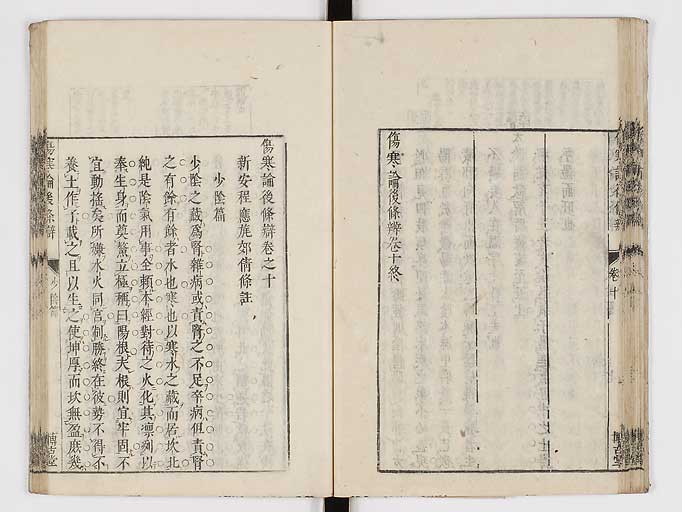 傷寒論後條辨卷十終
傷寒論後條辯卷之十
新安程應旄郊倩條註
少陰篇
少陰之藏爲腎雜病或責腎之不足卒病但責腎
之有餘有餘者水也寒也以寒水之藏而居坎北
純是陰氣用事全賴本經對待之火化其凛冽以
奉生身而莫鰲立極稱曰陽根夫根則宜牢固不
宜動搖矣所嫌水火同宮制勝終在彼勢不得不
養土作子載之且以生之使坤厚而坎無盈庶幾
傷寒論後條辯
少陰篇
博古堂
卷十